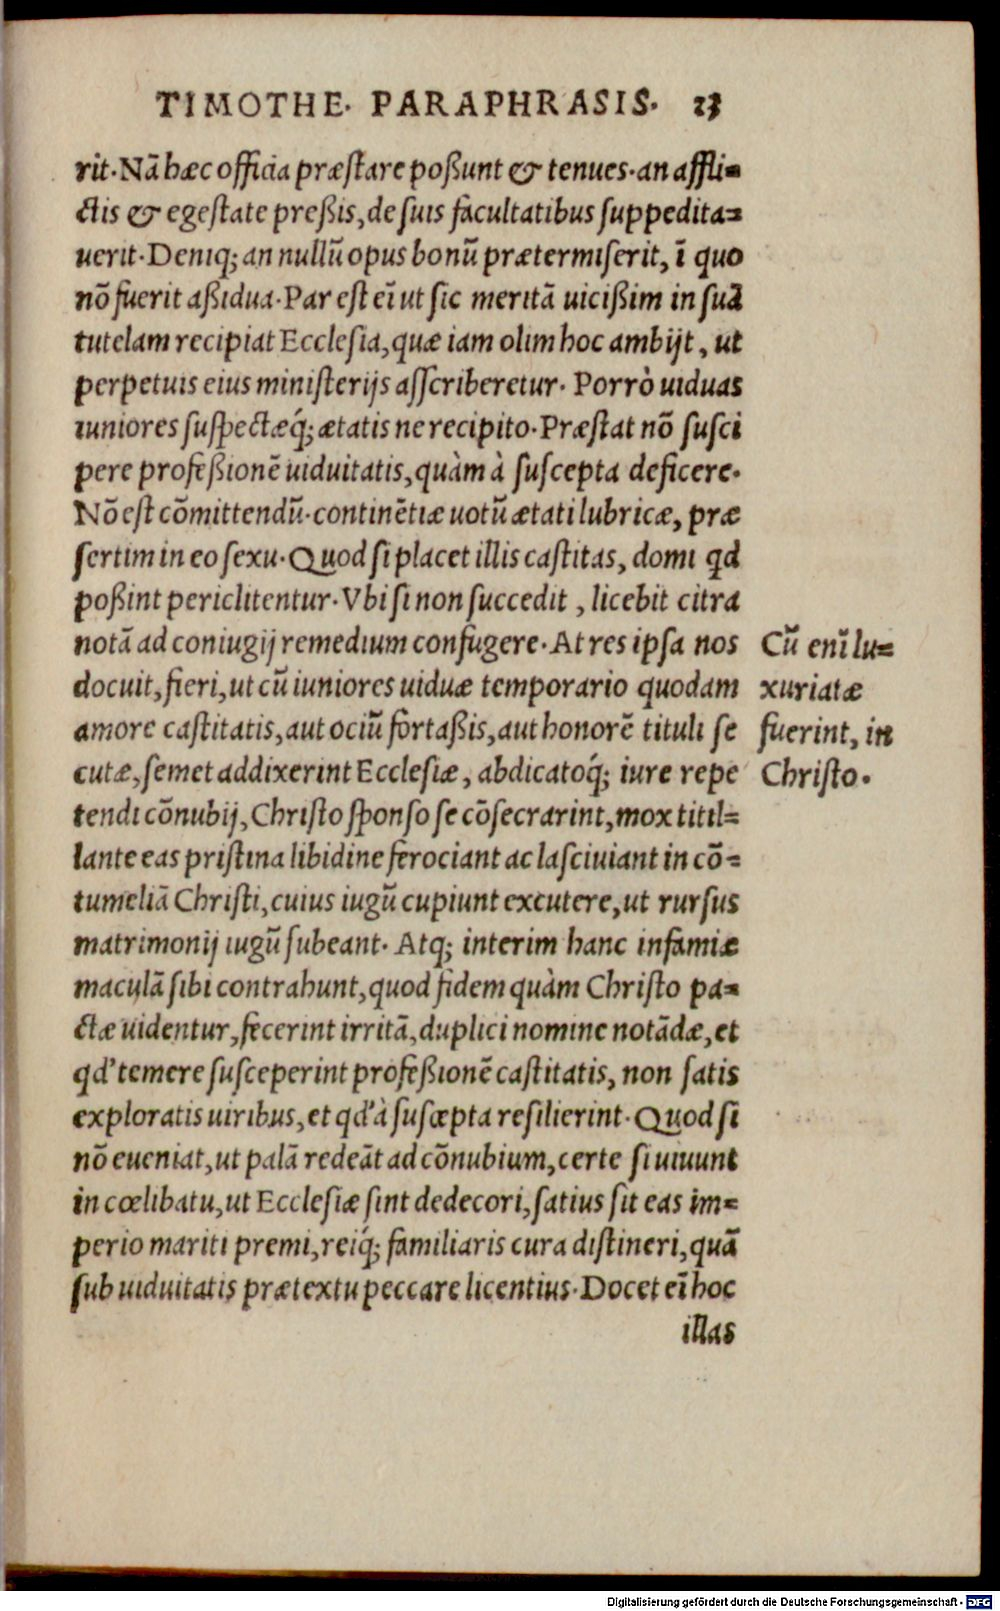 TIMOTHE. PARAPHRASIS. 23
rit. Nā hæc officia præſtare poßunt & tenues. an affli=
ctis & egeſtate preßis, de ſuis facultatibus ſuppedita=
uerit. Deniq; an nullū opus bonū prætermiſerit, ī quo
nō fuerit aßidua. Par eſt eī ut ſic meritā uicißim in ſuā
tutelam recipiat Eccleſia, quæ iam olim hoc ambijt, ut
perpetuis eius miniſterijs aſſcriberetur. Porrò uiduas
iuniores ſuſpectæq́; ætatis ne recipito. Præſtat nō ſuſci
pere profeßionē uiduitatis, quàm à ſuſcepta deficere.
Nō eſt cōmittendū. continētiæ uotū ætati lubricæ, præ
ſertim in eo ſexu. Quod ſi placet illis caſtitas, domi qd
poßint periclitentur. Vbi ſi non ſuccedit, licebit citra
notā ad coniugij remedium confugere. At res ipſa nos
docuit, fieri, ut cū iuniores uiduæ temporario quodam
amore caſtitatis, aut ociū fortaßis, aut honorē tituli ſe
cutæ, ſemet addixerint Eccleſiæ, abdicatoq́; iure repe
tendi cōnubij, Chriſto ſponſo ſe cōſecrarint, mox titil=
lante eas priſtina libidine ferociant ac laſciuiant in cō=
tumeliā Chriſti, cuius iugū cupiunt excutere, ut rurſus
matrimonij iugū ſubeant. Atq; interim hanc infamiæ
maculā ſibi contrahunt, quod fidem quàm Chriſto pa=
ctæ uidentur, fecerint irritā, duplici nomine notādæ, et
qd' temere ſuſceperint profeßionē caſtitatis, non ſatis
exploratis uiribus, et qd' à ſuſcepta reſilierint. Quod ſi
nō eueniat, ut palā redeāt ad cōnubium, certe ſi uiuunt
in cœlibatu, ut Eccleſiæ ſint dedecori, ſatius ſit eas im=
perio mariti premi, reiq́; familiaris cura diſtineri, quā
ſub uiduitatis prætextu peccare licentius. Docet eī hoc
illas
Cū enī lu=
xuriatæ
fuerint, in
Chriſto.
Digitalisierung gefördert durch die Deutsche Forschungsgemeinschaft - DFG